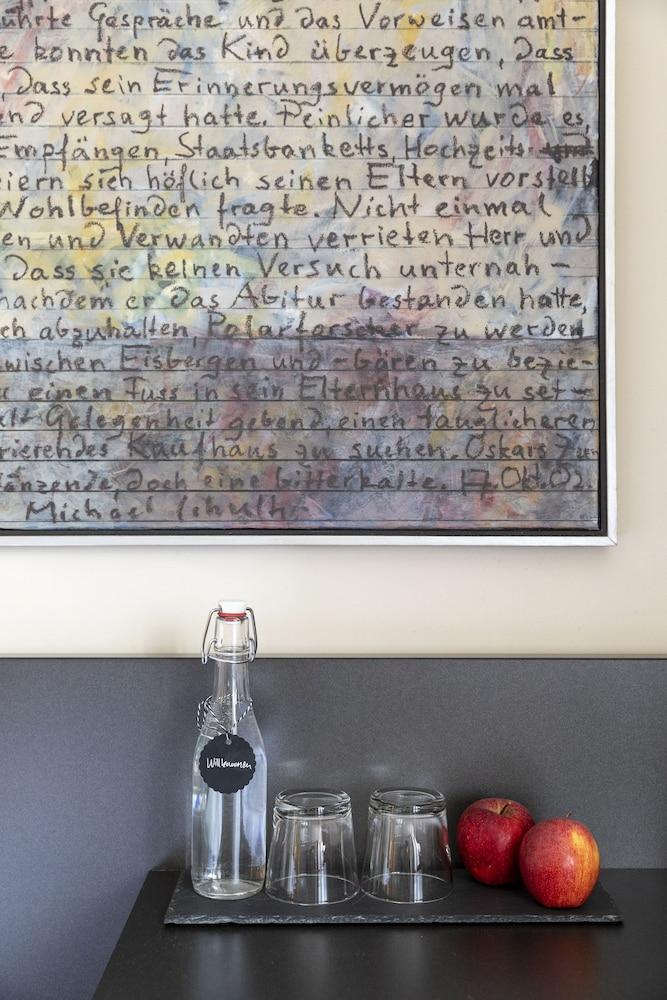 ührte Gespräche und das Vorweisen amt-
e konnten das Kind überzeugen, dass
, dass sein Erinnerungsvermögen mal
end versagt hatte. Peinlicher wurde es,
Empfängen, Staatsbanketts, Hochzeits-
eiern sich höflich seinen Eltern vorstell
Wohlbefinden fragte. Nicht einmal
en und Verwandten verrieten Herr und
dass sie keinen Versuch unternah-
nachdem er das Abitur bestanden hatte,
ch abzuhalten, Polarforscher zu werden
wischen Eisbergen und -bären zu bezie-
einen Fuss in sein Elternhaus zu set-
alt Gelegenheit gebend, einen tauglicheren
rierendes Kaufhaus zu suchen. Oskars Zu
länzende, doch eine bitterkalte. 17. Okt. 02.
Michael Schulth
Willkommen